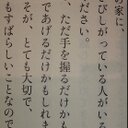 の家に、
びしがっている人がいる
ださい。
、ただ手を握るだけか
であげるだけかもしれま
そが、とても大切で、
もすばらしいことなので